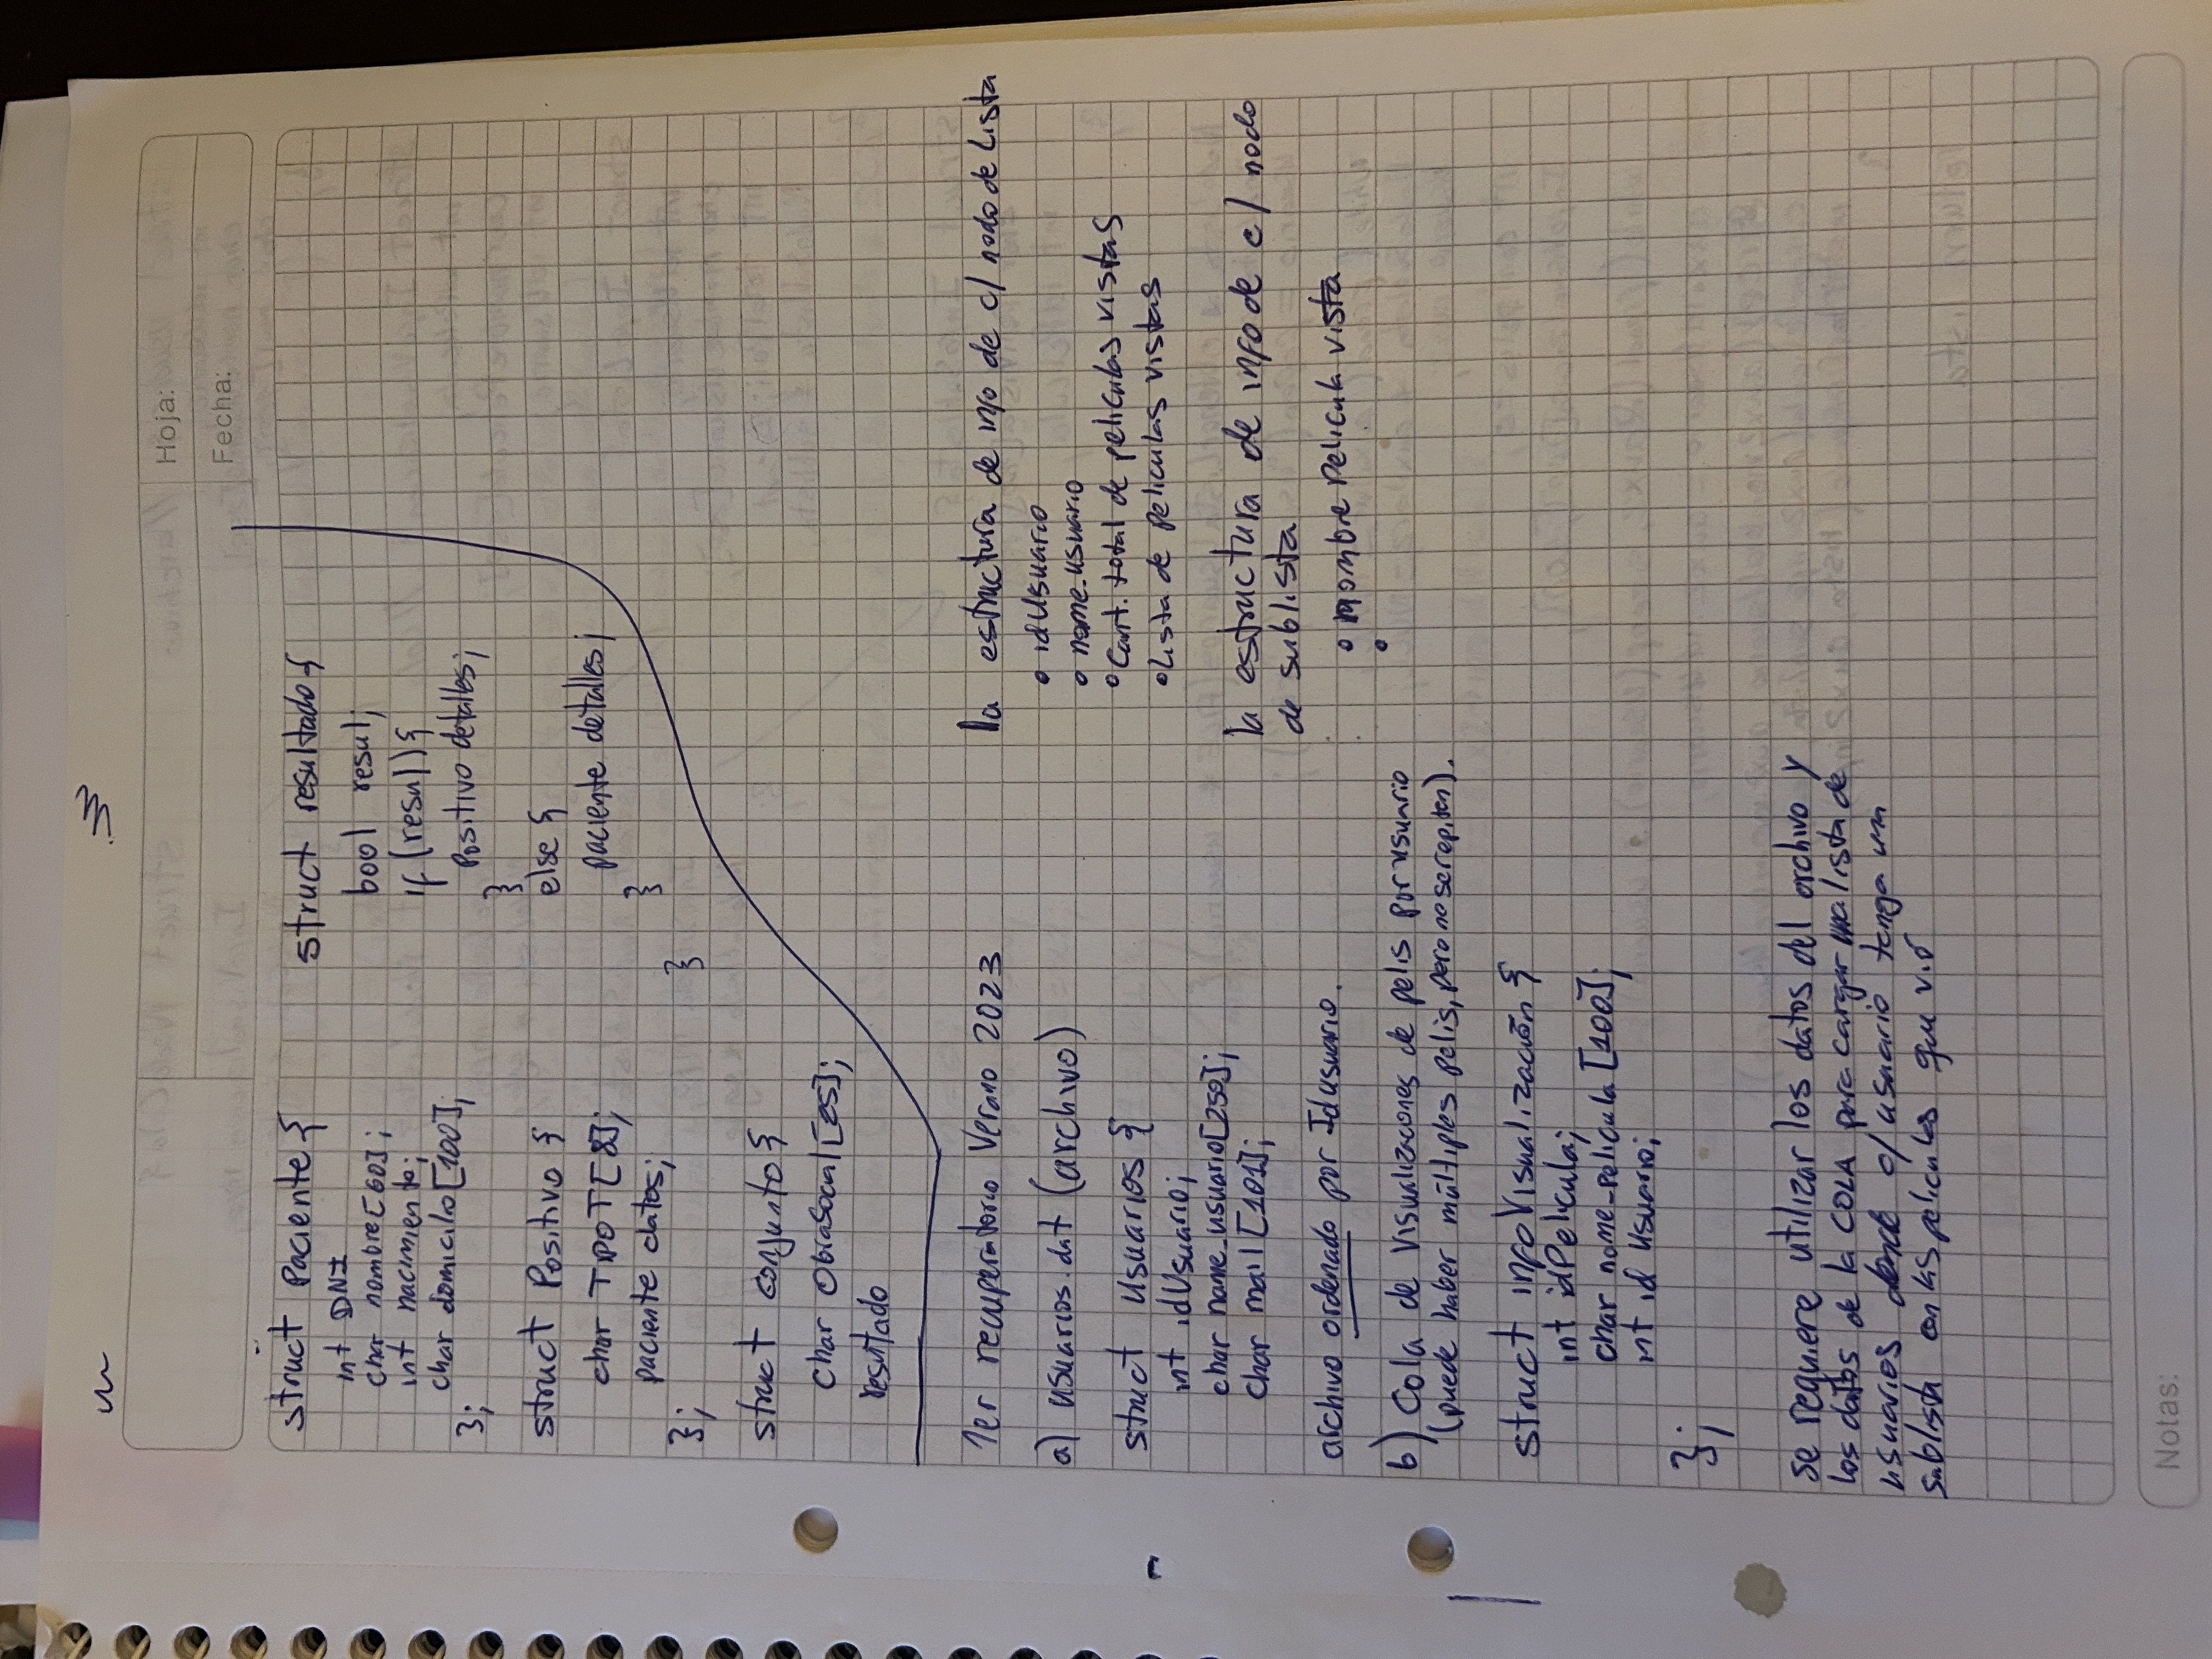 Hoja:
Fecha:
struct Paciente {
int DNI
char nombre[60];
int nacimiento;
char domicilo[100];
};
struct Positivo {
char TIPOT[8];
paciente datos;
};
struct conjunto {
char ObraSocial[25];
resultado
struct resultado {
bool resul;
if (resul) {
Positivo detalles;
}
else {
paciente detalles;
}
}
1er recuperatorio Verano 2023
a) usuarios.dat (archivo)
struct Usuarios {
int idUsuario;
char name_usuario[250];
char mail[101];
archivo ordenado por Idusuario.
b) Cola de visualizaciones de pelis por usuario
(puede haber múltiples pelis, pero no se repiten).
struct infoVisualización {
int idPelicula;
char nome_pelicula [100];
int id Usuario;
};
se requiere utilizar los datos del archivo y
los datos de la COLA para cargar una lista de
usuarios donde c/ usuario tenga una
sublista con las peliculas que vió
la estructura de info de c/ nodo de Lista
• idUsuario
• nome_usuario
• Cant. total de peliculas vistas
• Lista de peliculas vistas
la estructura de info de c/ nodo
de sublista
• nombre Pelicula vista
•
Notas: